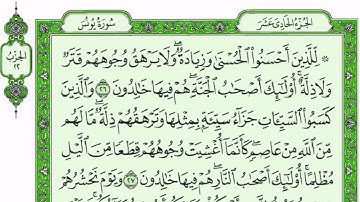 سُورَةُ يُونُسَ
الجُزءُ الحَادِى عَشَرَ
الحِزْبُ
٢٢
۞ لِّلَّذِينَ أَحْسَنُوا۟ ٱلْحُسْنَىٰ وَزِيَادَةٌ ۖ وَلَا يَرْهَقُ وُجُوهَهُمْ قَتَرٌ
وَلَا ذِلَّةٌ ۚ أُو۟لَـٰٓئِكَ أَصْحَـٰبُ ٱلْجَنَّةِ ۖ هُمْ فِيهَا خَـٰلِدُونَ ٢٦ وَٱلَّذِينَ
كَسَبُوا۟ ٱلسَّيِّـَٔاتِ جَزَآءُ سَيِّئَةٍۭ بِمِثْلِهَا وَتَرْهَقُهُمْ ذِلَّةٌ ۖ مَّا لَهُم
مِّنَ ٱللَّهِ مِنْ عَاصِمٍ ۖ كَأَنَّمَآ أُغْشِيَتْ وُجُوهُهُمْ قِطَعًا مِّنَ ٱلَّيْلِ
مُظْلِمًا ۚ أُو۟لَـٰٓئِكَ أَصْحَـٰبُ ٱلنَّارِ ۖ هُمْ فِيهَا خَـٰلِدُونَ ٢٧ وَيَوْمَ نَحْشُرُهُمْ